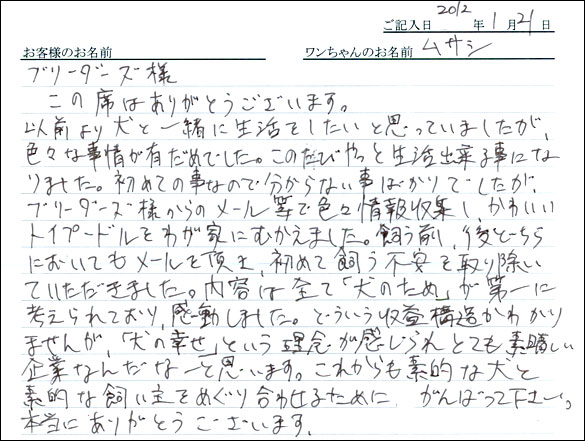 ご記入日 2012 年 1 月 21 日
お客様のお名前 ワンちゃんのお名前 ムサシ
ブリーダーズ様
この席はありがとうございます。
以前より犬と一緒に生活をしたいと思っていましたが、
色々な事情が有だめでした。このたびやっと生活出来る事にな
りました。初めての事なので分からない事ばかりでしたが、
ブリーダーズ様からのメール等で色々情報収集し、かわいい
トイプードルをわが家にむかえました。飼う前、後どちら
においてもメールを頂き、初めて飼う不安を取り除い
ていただきました。内容は全て「犬のため」が第一に
考えられており、感動しました。どういう収益構造かわかり
ませんが、「犬の幸せ」という理念が感じられとても素晴しい
企業なんだなーと思います。これからも素的な犬と
素的な飼い主をめぐり合わせるために、がんばって下さい。
本当にありがとうございます。